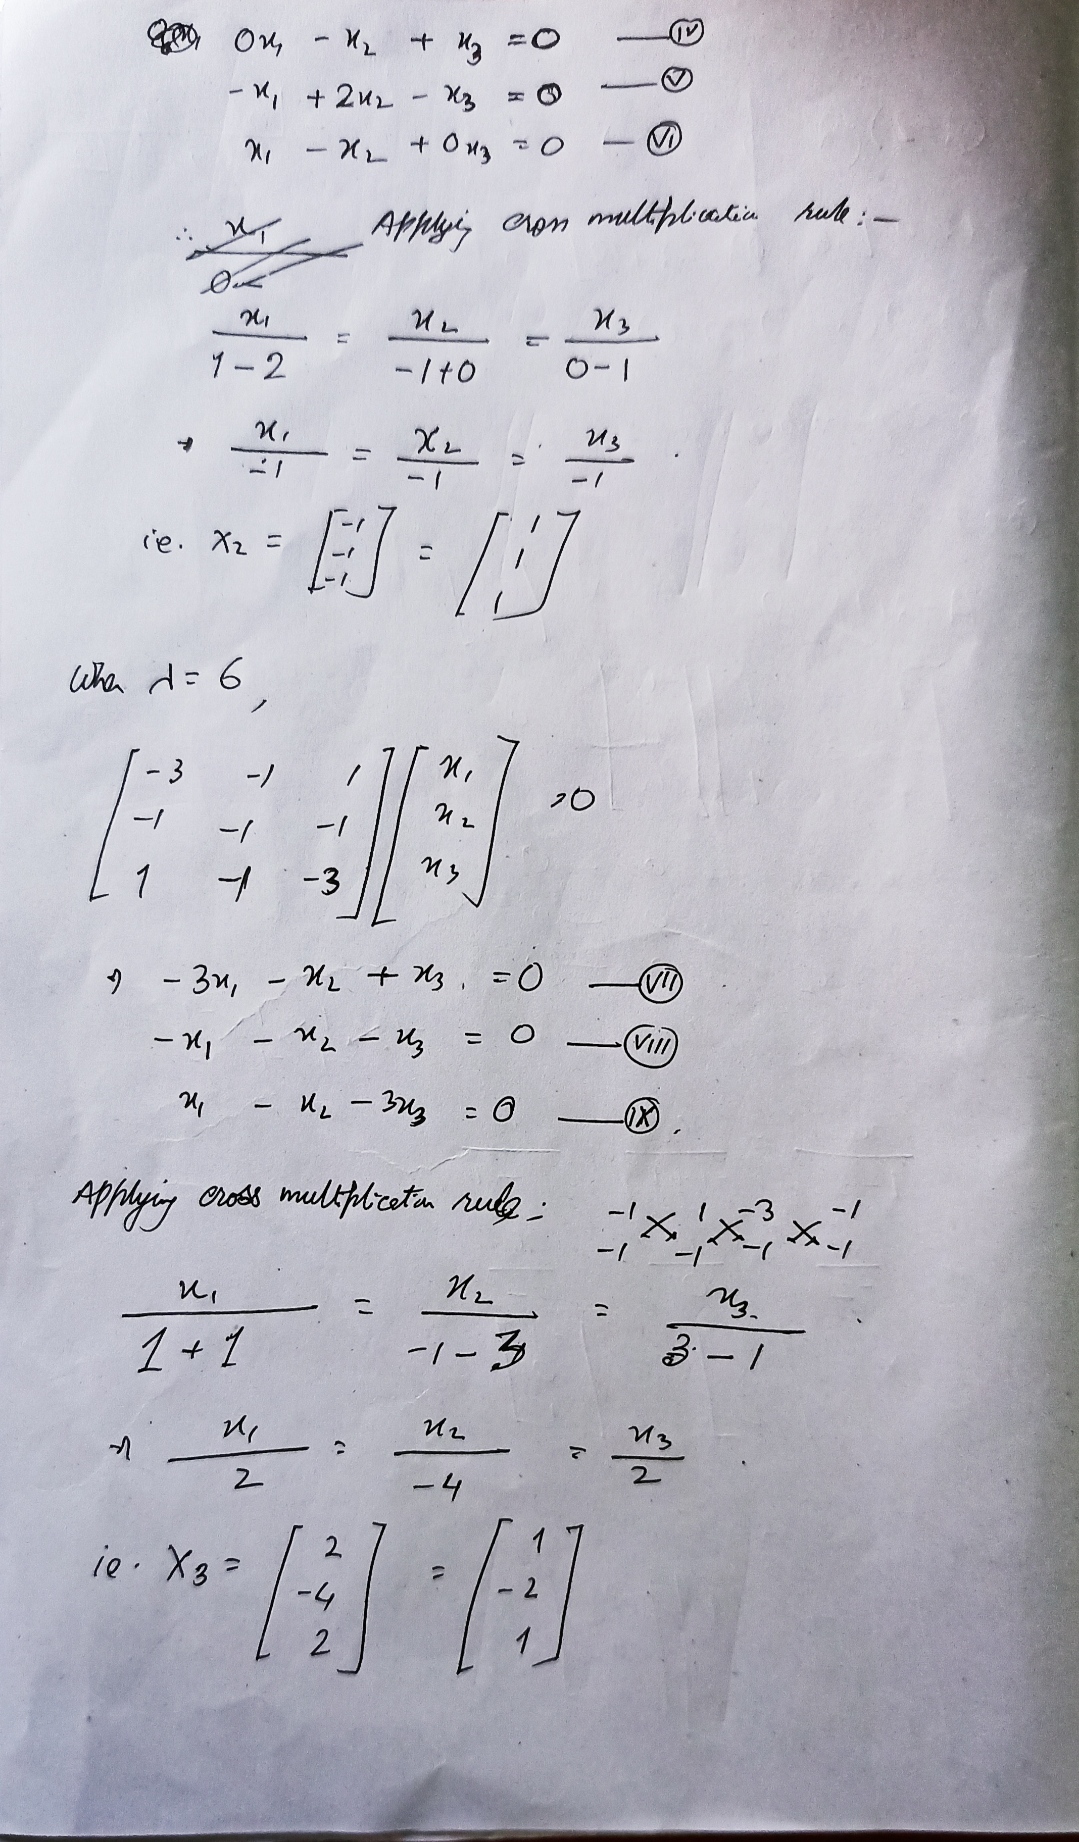 0x₁ - x₂ + x₃ = 0 — (IV)
-x₁ + 2x₂ - x₃ = 0 — (V)
x₁ - x₂ + 0x₃ = 0 — (VI)
∴ x₁ Applying cross multiplication rule :-
x₁/(1-2) = x₂/(-1+0) = x₃/(0-1)
⇒ x₁/-1 = x₂/-1 = x₃/-1
ie. X₂ = [-1 -1 -1] = [1 1 1]
When λ = 6,
[-3 -1 1
-1 -1 -1
1 -1 -3] [x₁ x₂ x₃] = 0
⇒ -3x₁ - x₂ + x₃ = 0 — (VII)
-x₁ - x₂ - x₃ = 0 — (VIII)
x₁ - x₂ - 3x₃ = 0 — (IX)
Applying cross multiplication rule :- -1 × 1 × -3 × -1
-1 -1 -1 -1
x₁/(1+1) = x₂/(-1-3) = x₃/(3-1)
⇒ x₁/2 = x₂/-4 = x₃/2
ie. X₃ = [2 -4 2] = [1 -2 1]